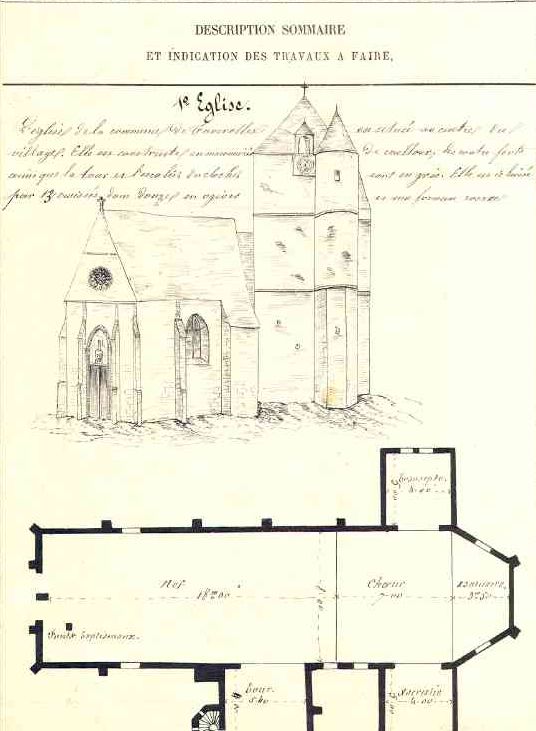 DESCRIPTION SOMMAIRE
ET INDICATION DES TRAVAUX A FAIRE,
1º Eglise.
L'église de la commune de est située au centre du
village. Elle est construite en maçonnerie de cailloux, les contre forts
ainsi que la tour et l'escalier du clocher sont en grès. Elle est éclairée
par 13 croisées, dont douze en ogives et une forme ronde
Transepte
4.00
Nef
18m00
Chœur
7.00
Sanctuaire,
3m50
Fonts baptismaux.
Tour
5.40
Sacristie
4.00